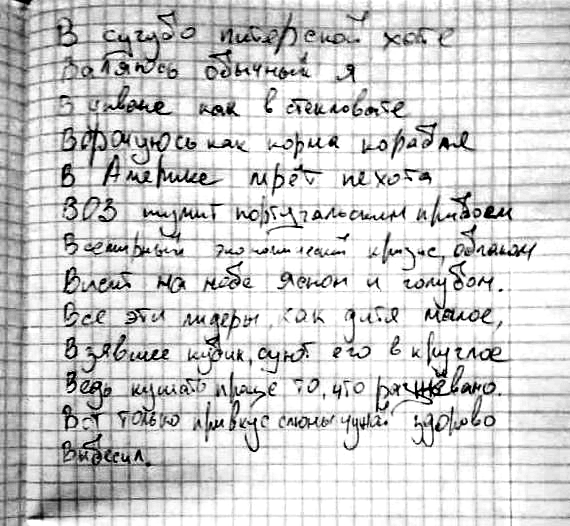 В сугубо питерской хате
Валяюсь обычный я
В диване как в стекловате
Ворочуюсь как корма корабля
В Америке прёт пехота
ВОЗ шумит португальским прибоем
Всемирный экономический кризис, облаком
Висит на небе ясном и голубом.
Все эти лидеры, как дитя малое,
Взявшее кубик, суют его в круглое
Ведь кушать проще то, что разжёвано.
Вот только привкус слюны чужой здорово
Выбесил.